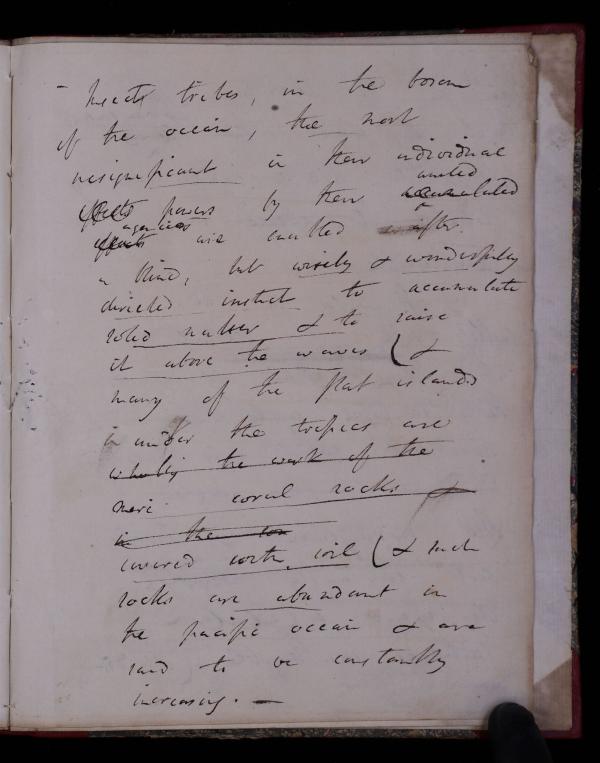 - Insects tribes, in the bosom
of the ocean, the most
insignificant in their individual
united
effects powers by their accumulated
agencies
efforts are enabled after
a blind, but wisely & wonderfully
directed instinct to accumulate
solid matter & to raise
it above the waves (&
many of the flat islands
in under the tropics are
wholly the work of the
mere coral rocks &
in the
covered with soil ( & such
rocks are abundant in
the pacific ocean & are
said to be constantly
increasing. —